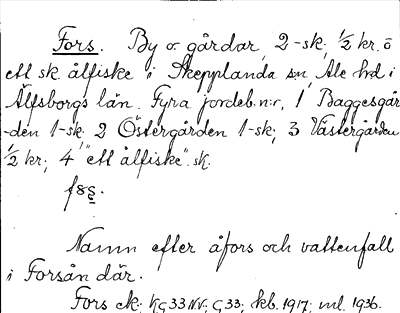 Fors. By o. gårdar, 2-sk; 1/2 kr. o
ett sk. ålfiske i Skepplanda sn, Ale hd i
Älfsborgs län. Fyra jordeb.n:r, 1 Baggesgår
-den 1-sk; 2 Östergården 1-sk; 3 Västergården
1/2 kr; 4 "ett ålfiske" sk.
Namn efter åfors och vattenfall
i Forsån där.
Fors ek; G 33 NV; G 33; skb. 1917; ml. 1936.